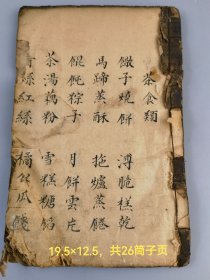 茶食類
饊子燒餅 薄脆糕乾
馬蹄蒸酥 拖爐蒸
餛飩粽子 月餅雲片
茶湯藕粉 雪糕糖餡
絲紅絲 橘 瓜
19.5×12.5，共26筒子页